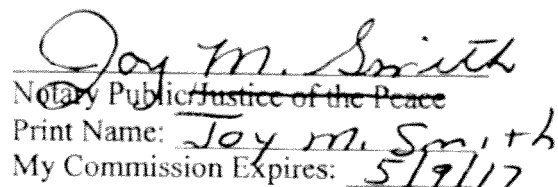 Joy M. Smith
Notary Public/Justice of the Peace
Print Name: Joy M. Smith
My Commission Expires: 5/9/17